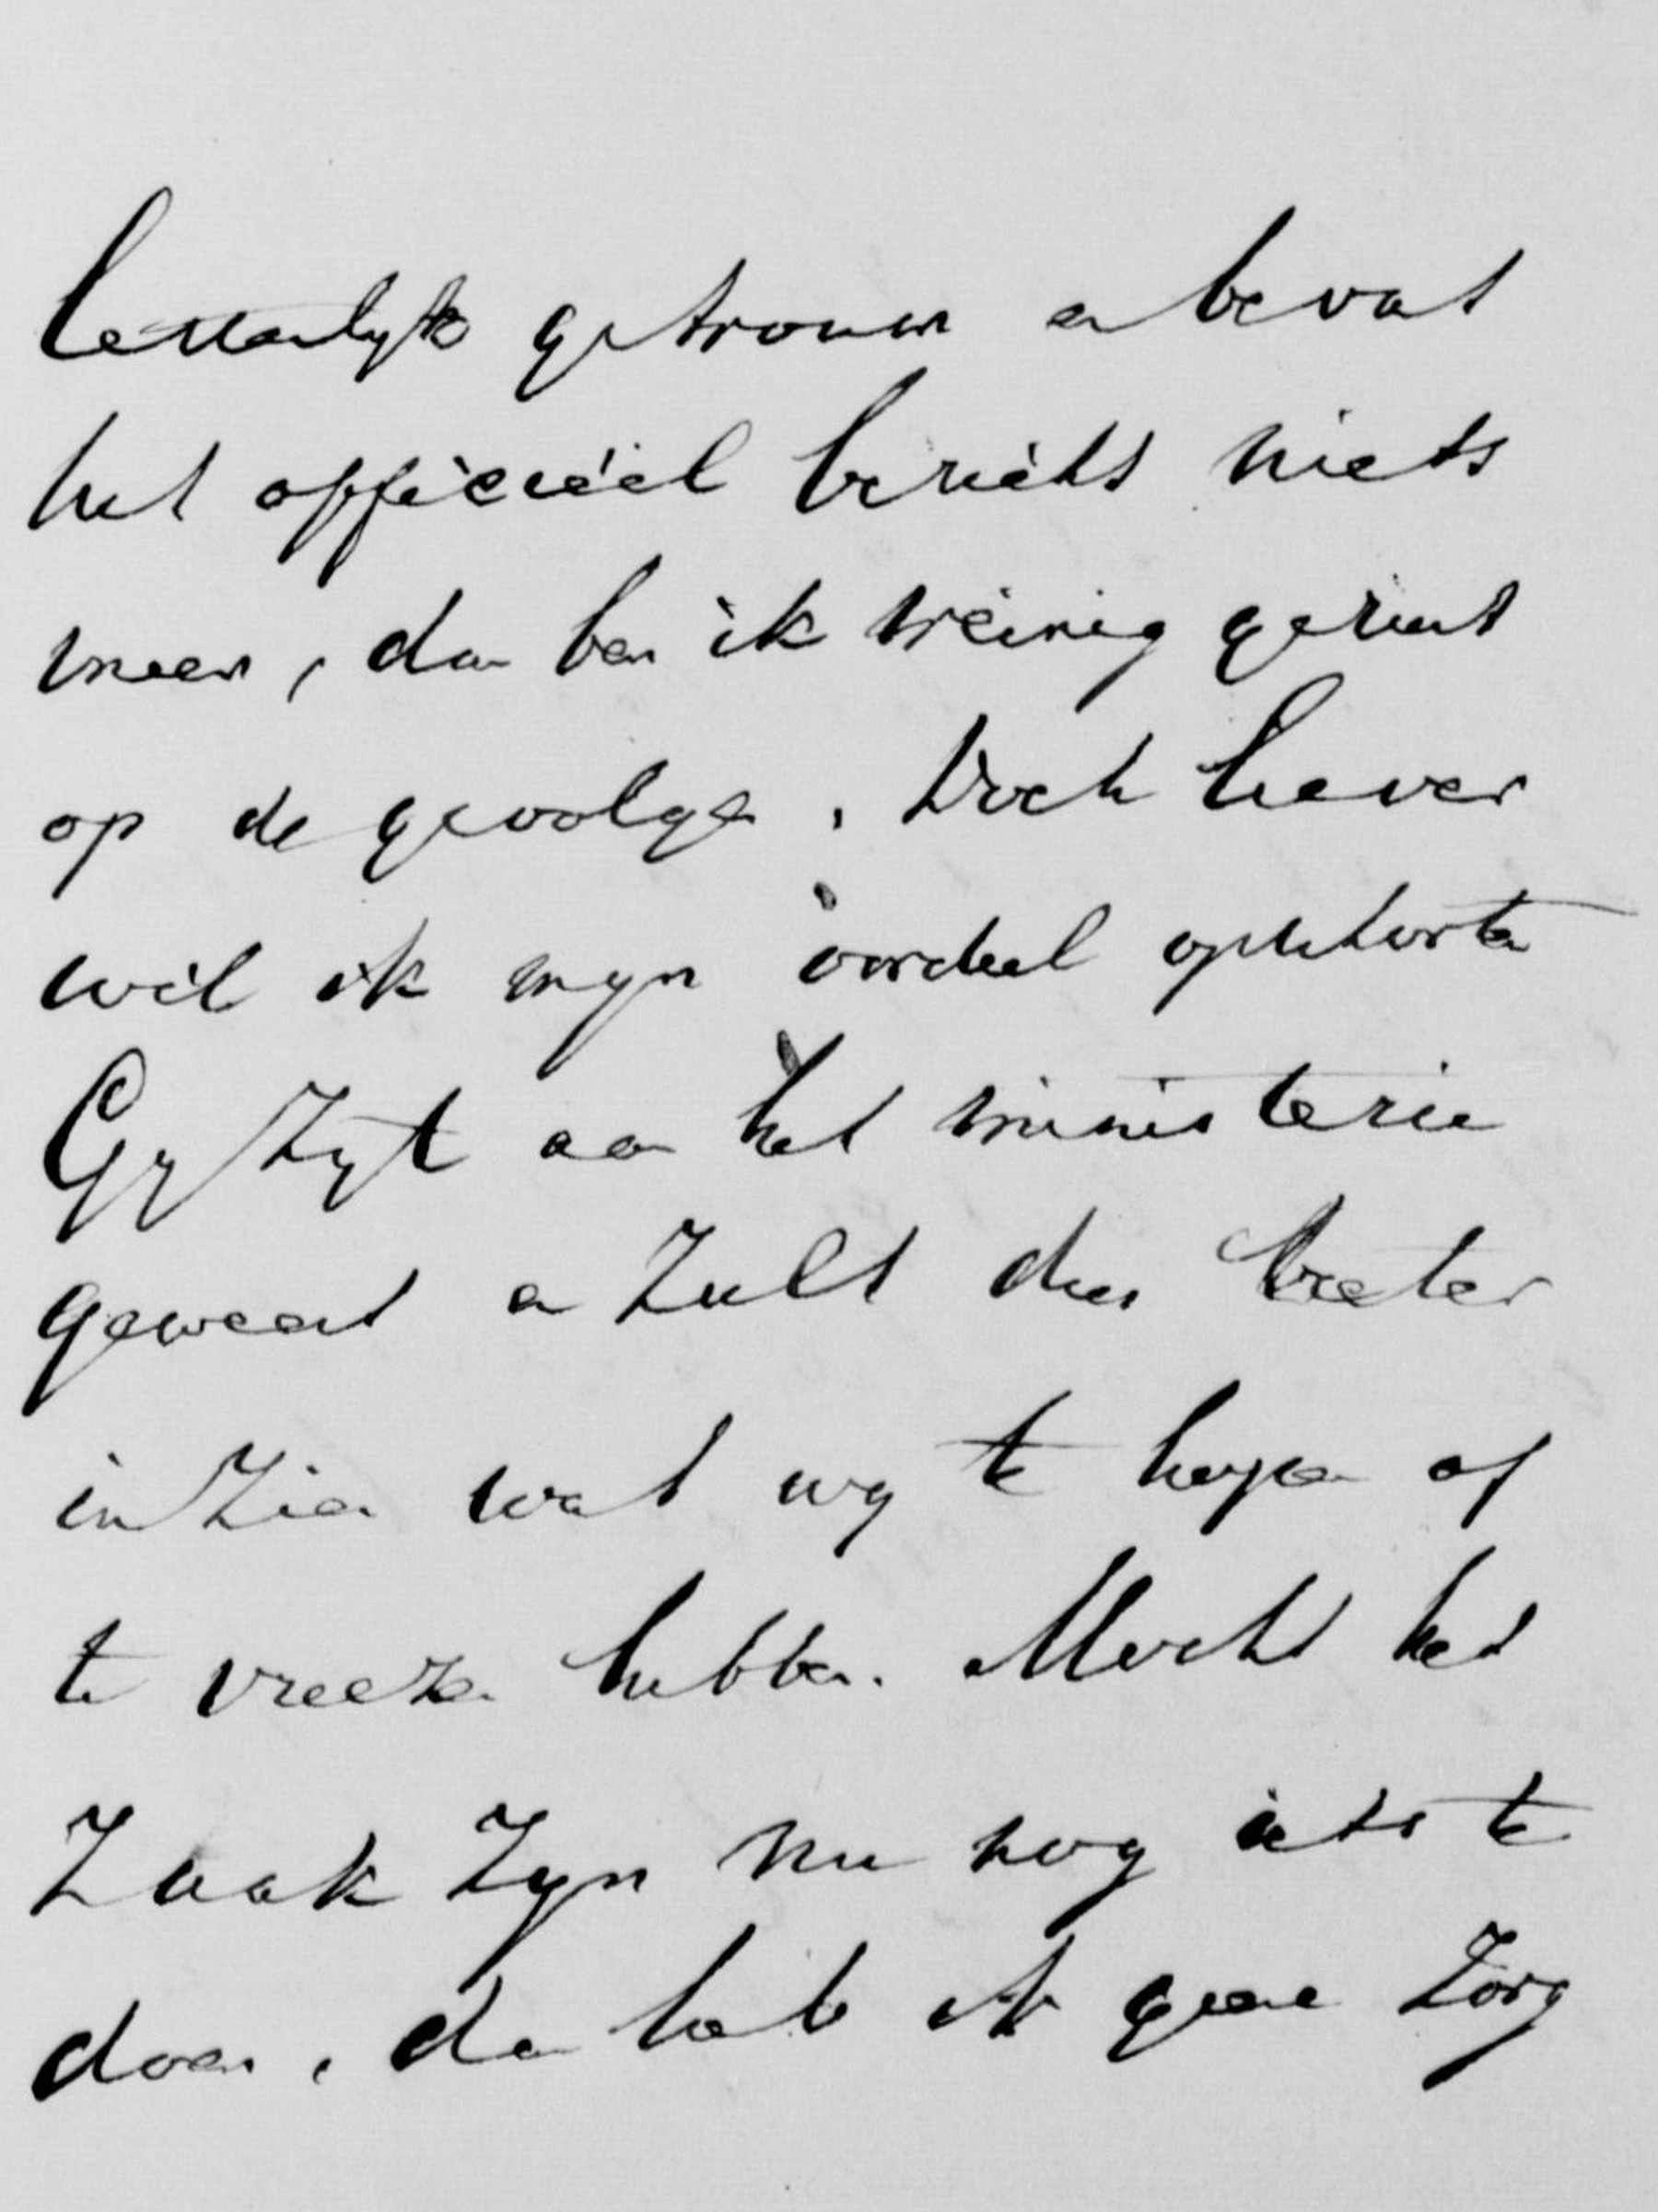 letterlyk getrouw en bevat
het officiëel bericht niets
meer, dan ben ik weinig gerust
op de gevolgen. Doch liever
wil ik myn oordeel opschorten
Gy zyt aan het ministerie
geweest en zult dus beter
inzien wat wy te hopen of
te vreezen hebben. Mocht het
zaak zyn nu nog iets te
doen, dan heb ik geene zorg